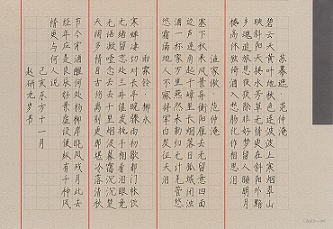 苏幕遮 范仲淹
碧云天黄叶地秋色连波波上寒烟翠山
映斜阳天接水芳草无情更在斜阳外黯
乡魂追旅思夜夜除非好梦留人睡明月
楼高休独倚酒入愁肠化作相思泪
渔家傲 范仲淹
塞下秋来风景异衡阳雁去无留意四面
边声连角起千嶂里长烟落日孤城闭浊
酒一杯家万里燕然未勒归无计羌管悠
悠霜满地人不寐将军白发征夫泪
雨霖铃·柳永
寒蝉凄切对长亭晚骤雨初歇都门帐饮
无绪留恋处兰舟催发执手相看泪眼竟
无语凝噎念去去千里烟波暮霭沉沉楚
天阔多情自古伤离别更那堪冷落清秋
节今宵酒醒何处杨柳岸晓风残月此去
经年应是良辰好景虚设便纵有千种风
情更与何人说
己亥 十一月